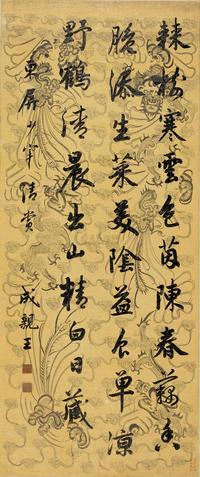 棘樹寒雲色茵陳春藕香
脆添生菜美陰益食單涼
野鶴清晨出山精白日藏
東屏少宰清賞
成親王